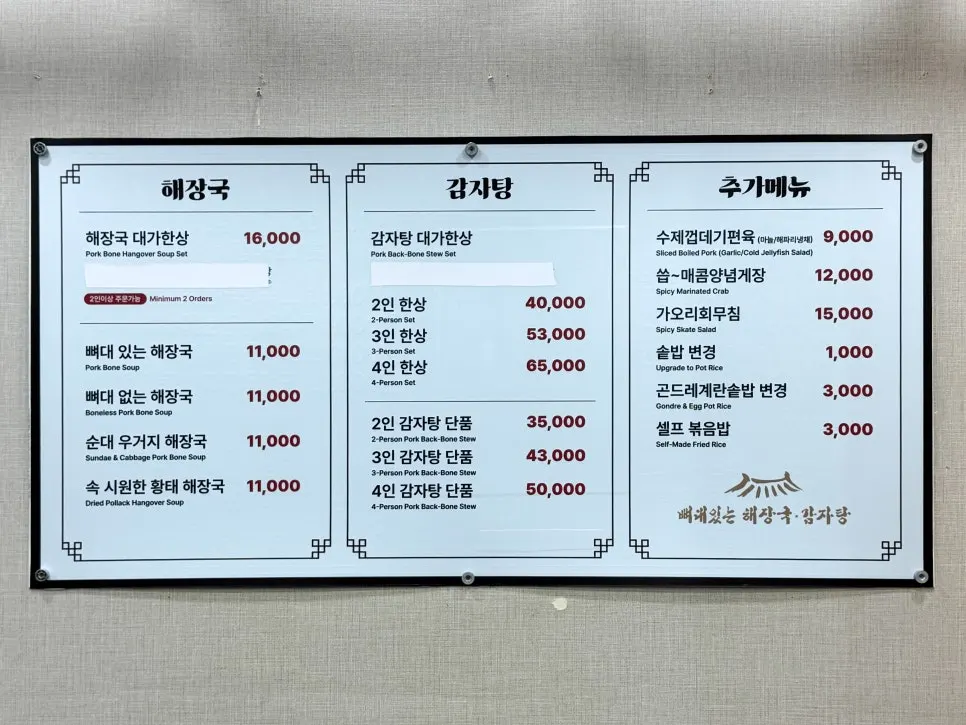 해장국
해장국 대가한상 16,000
Pork Bone Hangover Soup Set
2인이상 주문가능 Minimum 2 Orders
뼈대 있는 해장국 11,000
Pork Bone Soup
뼈대 없는 해장국 11,000
Boneless Pork Bone Soup
순대 우거지 해장국 11,000
Sundae & Cabbage Pork Bone Soup
속 시원한 황태 해장국 11,000
Dried Pollack Hangover Soup
감자탕
감자탕 대가한상
Pork Back-Bone Stew Set
2인 한상 40,000
2-Person Set
3인 한상 53,000
3-Person Set
4인 한상 65,000
4-Person Set
2인 감자탕 단품 35,000
2-Person Pork Back-Bone Stew
3인 감자탕 단품 43,000
3-Person Pork Back-Bone Stew
4인 감자탕 단품 50,000
4-Person Pork Back-Bone Stew
추가메뉴
수제껍데기편육 (마늘/해파리냉채) 9,000
Sliced Boiled Pork (Garlic/Cold Jellyfish Salad)
씁~매콤양념게장 12,000
Spicy Marinated Crab
가오리회무침 15,000
Spicy Skate Salad
솥밥 변경 1,000
Upgrade to Pot Rice
곤드레계란솥밥 변경 3,000
Gondre & Egg Pot Rice
셀프 볶음밥 3,000
Self-Made Fried Rice
뼈대있는 해장국·감자탕